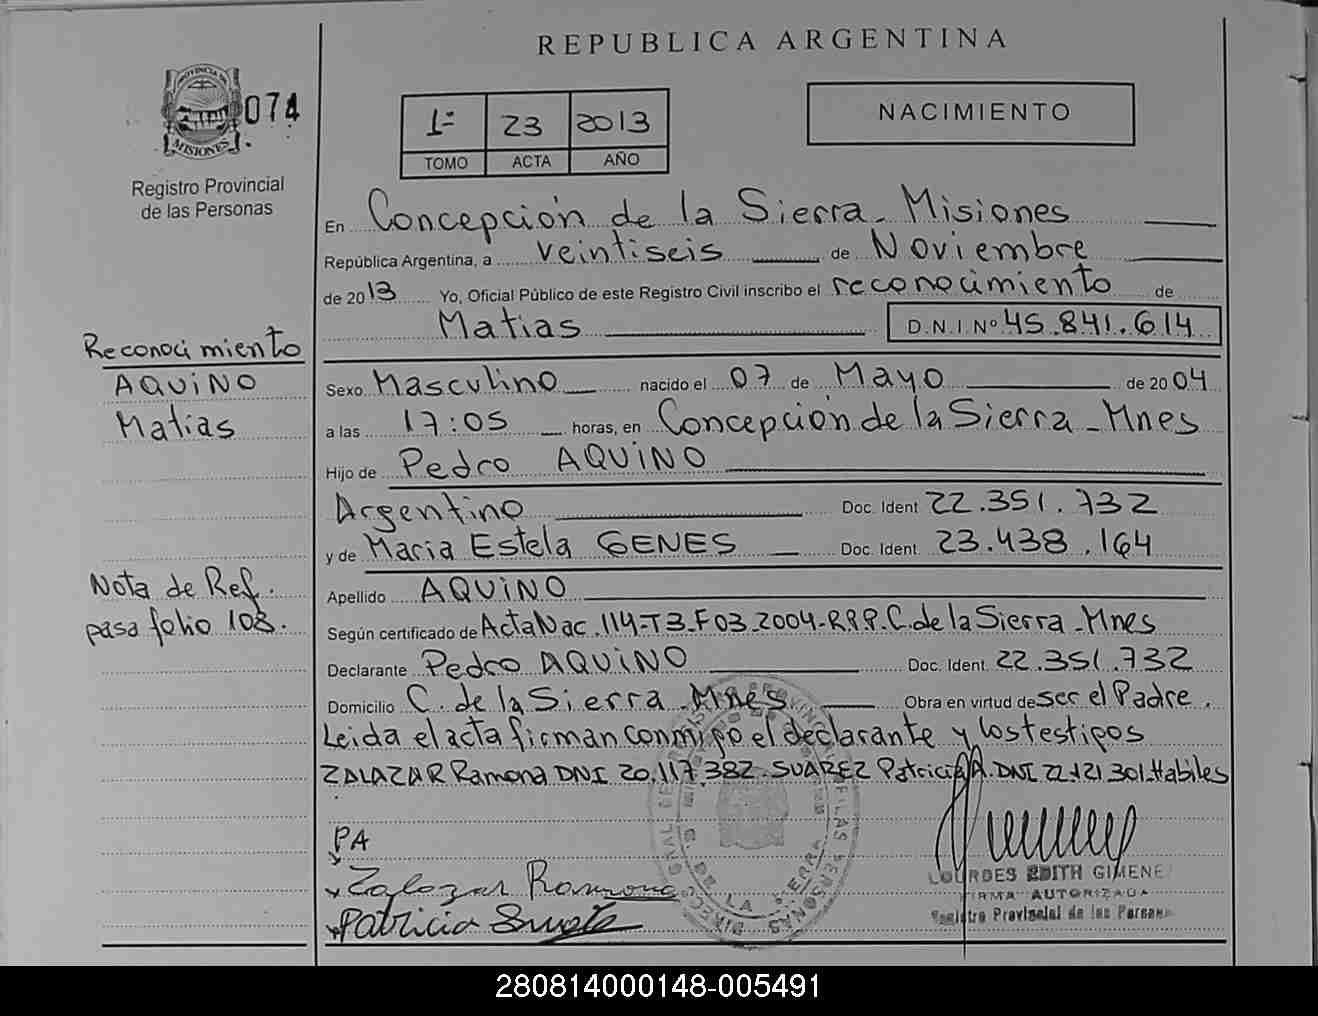 REPUBLICA ARGENTINA
PROVINCIA DE
MISIONES
074
Registro Provincial
de las Personas
1º 23 2013
TOMO ACTA AÑO
NACIMIENTO
En Concepción de la Sierra - Misiones
República Argentina, a veintiseis de Noviembre
de 2013 Yo, Oficial Público de este Registro Civil inscribo el reconocimiento de
Matias D.N.I Nº 45.841.614
Reconocimiento
AQUINO
Matias
Sexo Masculino nacido el 07 de Mayo de 2004
a las 17:05 horas, en Concepción de la Sierra - Mnes
Hijo de Pedro AQUINO
Argentino Doc. Ident 22.351.732
y de Maria Estela GENES Doc. Ident. 23.438.164
Apellido AQUINO
Nota de Ref.
pasa folio 108.
Según certificado de Acta Nac. 114-T3-F03-2004-RPP. C. de la Sierra - Mnes
Declarante Pedro AQUINO Doc. Ident. 22.351.732
Domicilio C. de la Sierra - Mnes Obra en virtud de ser el Padre.
Leida el acta firman conmigo el declarante y los testigos
ZALAZAR Ramona DNI 20.117.382 - SUAREZ Patricia A. DNI 22.121.301 - Habiles
PA
Zalazar Ramona
Patricia
LOURDES EDITH GIMENE
FIRMA AUTORIZADA
Registro Provincial de las Personas
280814000148-005491